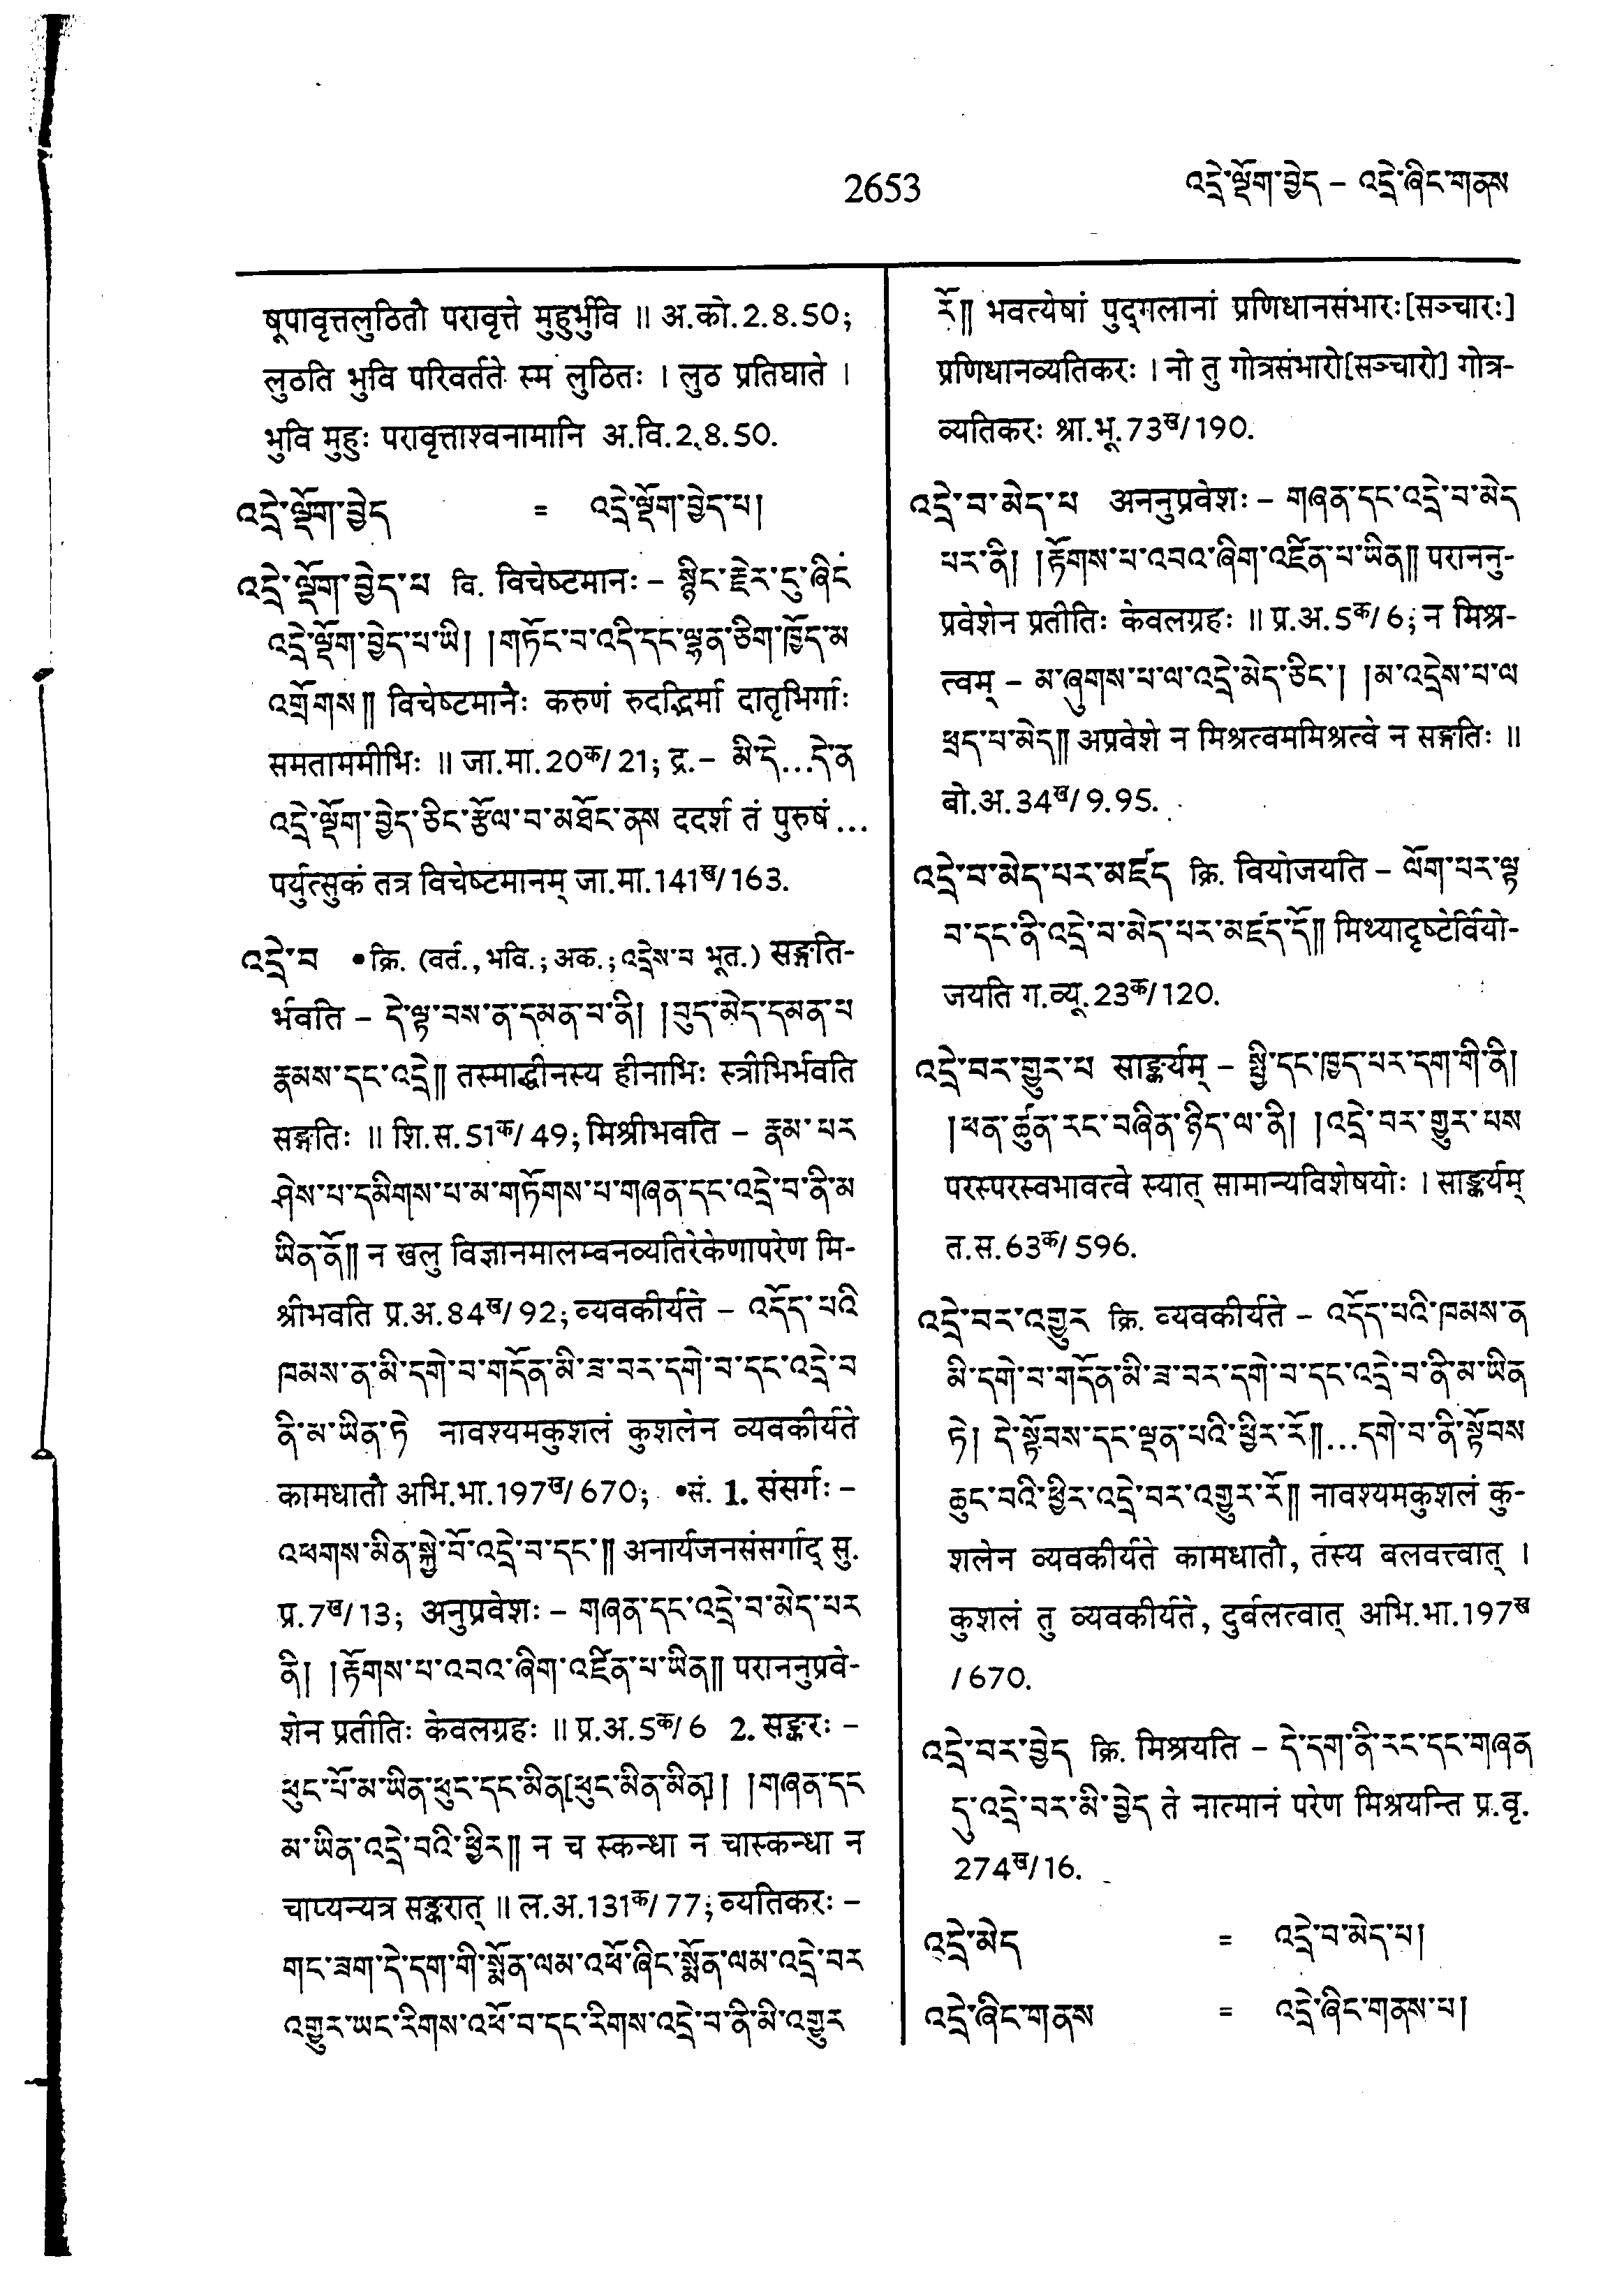 2653
འདྲེ་ལྡོག་བྱེད – འདྲེ་ཞིང་གནས
षूपावृत्तलुठितौ परावृत्ते मुहुर्भुवि ॥ अ.को.2.8.50;
लुठति भुवि परिवर्तते स्म लुठितः । लुठ प्रतिघाते ।
भुवि मुहुः परावृत्ताश्वनामानि अ.वि.2.8.50.
འདྲེ་ལྡོག་བྱེད = འདྲེ་ལྡོག་བྱེད་པ།
འདྲེ་ལྡོག་བྱེད་པ वि. विचेष्टमानः – སྙིང་རྗེར་ངུ་ཞིང
འདྲེ་ལྡོག་བྱེད་པ་ཡི། །གཏོང་བ་འདི་དང་ལྷན་ཅིག་ཁྱོད་མ
འགྲོགས༎ विचेष्टमानैः करुणं रुदद्भिर्मा दातृभिर्गाः
समताममीभिः ॥ जा.मा.20क/21; द्र.– མི་དེ...དེ་ན
འདྲེ་ལྡོག་བྱེད་ཅིང་རྩོལ་བ་མཐོང་ནས ददर्श तं पुरुषं...
पर्युत्सुकं तत्र विचेष्टमानम् जा.मा.141ख/163.
འདྲེ་བ •क्रि. (वर्त., भवि.; अक.; འདྲེས་བ भूत.) सङ्गति-
र्भवति – དེ་ལྟ་བས་ན་དམན་བ་ནི། །བུད་མེད་དམན་པ
རྣམས་དང་འདྲེ༎ तस्माद्धीनस्य हीनाभिः स्त्रीभिर्भवति
सङ्गतिः ॥ शि.स.51क/49; मिश्रीभवति – རྣམ་པར
ཤེས་པ་དམིགས་པ་མ་གཏོགས་པ་གཞན་དང་འདྲེ་བ་ནི་མ
ཡིན་ནོ༎ न खलु विज्ञानमालम्बनव्यतिरेकेणापरेण मि-
श्रीभवति प्र.अ.84ख/92; व्यवकीर्यते – འདོད་པའི
ཁམས་ན་མི་དགེ་བ་གདོན་མི་ཟ་བར་དགེ་བ་དང་འདྲེ་བ
ནི་མ་ཡིན་ཏེ नावश्यमकुशलं कुशलेन व्यवकीर्यते
कामधातौ अभि.भा.197ख/670; •सं. 1. संसर्गः –
འཕགས་མིན་སྐྱེ་བོ་འདྲེ་བ་དང་༎ अनार्यजनसंसर्गाद् सु.
प्र.7ख/13; अनुप्रवेशः – གཞན་དང་འདྲེ་བ་མེད་པར
ནི། །རྟོགས་པ་འབའ་ཞིག་འཛིན་པ་ཡིན༎ पराननुप्रवे-
शेन प्रतीतिः केवलग्रहः ॥ प्र.अ.5क/6 2. सङ्करः –
ཕུང་པོ་མ་ཡིན་ཕུང་དང་མིན[ཕུང་མིན་མིན]། །གཞན་དང
མ་ཡིན་འདྲེ་བའི་ཕྱིར༎ न च स्कन्धा न चास्कन्धा न
चाप्यन्यत्र सङ्करात् ॥ ल.अ.131क/77; व्यतिकरः –
གང་ཟག་དེ་དག་གི་སྨོན་ལམ་འཕོ་ཞིང་སྨོན་ལམ་འདྲེ་བར
འགྱུར་ཡང་རིགས་འཕོ་བ་དང་རིགས་འདྲེ་བ་ནི་མི་འགྱུར
རོ༎ भवत्येषां पुद्गलानां प्रणिधानसंभारः[सञ्चारः]
प्रणिधानव्यतिकरः । नो तु गोत्रसंभारो[सञ्चारो] गोत्र-
व्यतिकरः श्रा.भू.73ख/190.
འདྲེ་བ་མེད་པ अननुप्रवेशः – གཞན་དང་འདྲེ་བ་མེད
པར་ནི། །རྟོགས་པ་འབའ་ཞིག་འཛིན་པ་ཡིན༎ पराननु-
प्रवेशेन प्रतीतिः केवलग्रहः ॥ प्र.अ.5क/6; न मिश्र-
त्वम् – མ་ཞུགས་པ་ལ་འདྲེ་མེད་ཅིང་། །མ་འདྲེས་པ་ལ
ཕྲད་པ་མེད༎ अप्रवेशे न मिश्रत्वममिश्रत्वे न सङ्गतिः ॥
बो.अ.34ख/9.95.
འདྲེ་བ་མེད་པར་མཛད क्रि. वियोजयति – ལོག་པར་ལྟ
བ་དང་ནི་འདྲེ་བ་མེད་པར་མཛད་དོ༎ मिथ्यादृष्टेर्वियो-
जयति ग.व्यू.23क/120.
འདྲེ་བར་གྱུར་པ साङ्कर्यम् – སྤྱི་དང་ཁྱད་པར་དག་གི་ནི།
།ཕན་ཚུན་རང་བཞིན་ཉིད་ལ་ནི། །འདྲེ་བར་གྱུར་པས
परस्परस्वभावत्वे स्यात् सामान्यविशेषयोः । साङ्कर्यम्
त.स.63क/596.
འདྲེ་བར་འགྱུར क्रि. व्यवकीर्यते – འདོད་པའི་ཁམས་ན
མི་དགེ་བ་གདོན་མི་ཟ་བར་དགེ་བ་དང་འདྲེ་བ་ནི་མ་ཡིན
ཏེ། དེ་སྟོབས་དང་ལྡན་པའི་ཕྱིར་རོ༎...དགེ་བ་ནི་སྟོབས
ཆུང་བའི་ཕྱིར་འདྲེ་བར་འགྱུར་རོ༎ नावश्यमकुशलं कु-
शलेन व्यवकीर्यते कामधातौ, तस्य बलवत्त्वात् ।
कुशलं तु व्यवकीर्यते, दुर्बलत्वात् अभि.भा.197ख
/670.
འདྲེ་བར་བྱེད क्रि. मिश्रयति – དེ་དག་ནི་རང་དང་གཞན
དུ་འདྲེ་བར་མི་བྱེད ते नात्मानं परेण मिश्रयन्ति प्र.वृ.
274ख/16.
འདྲེ་མེད = འདྲེ་བ་མེད་པ།
འདྲེ་ཞིང་གནས = འདྲེ་ཞིང་གནས་པ།